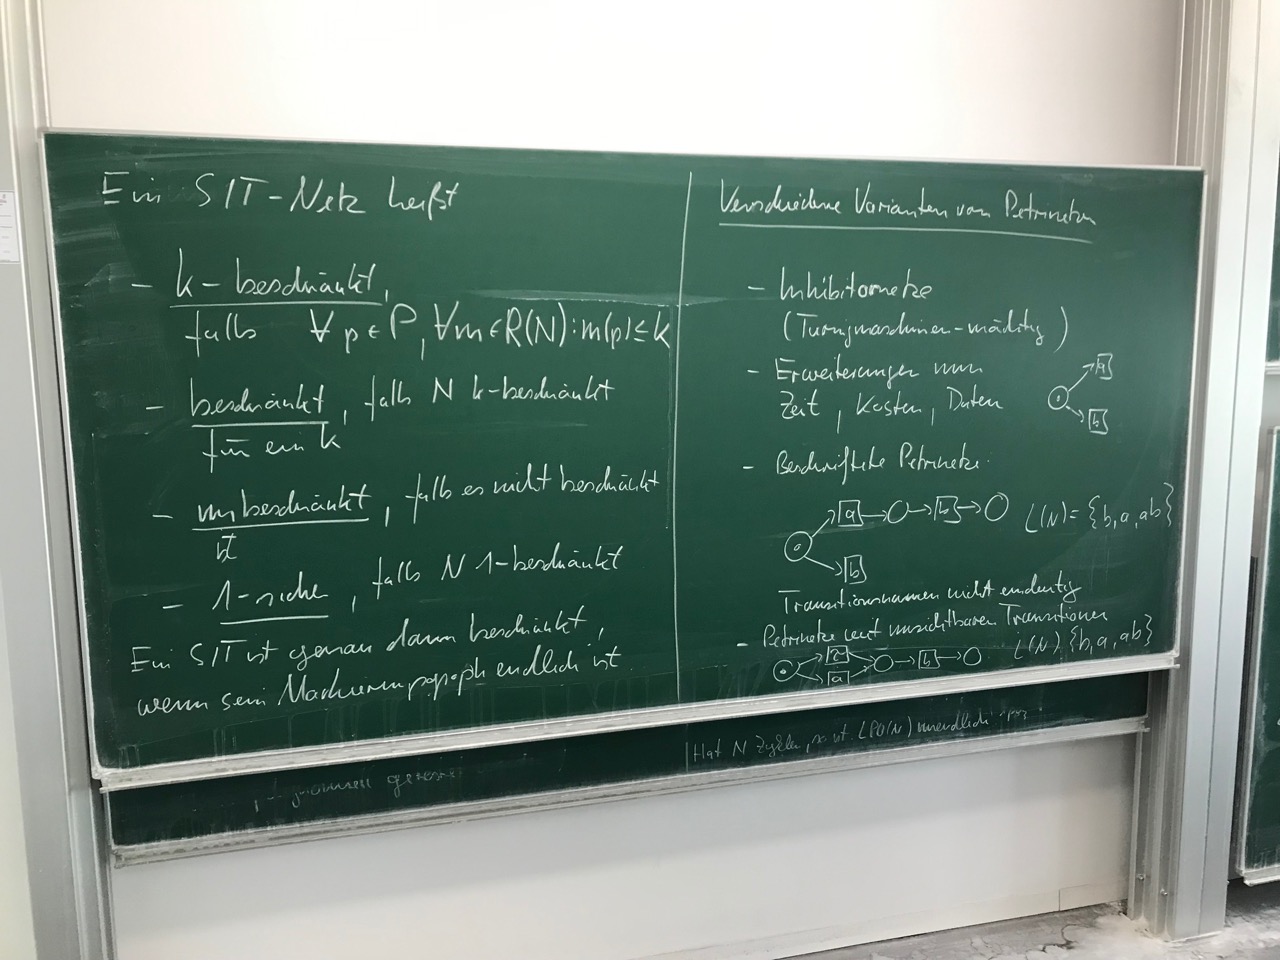 Ein S/T-Netz heißt
- k-beschränkt,
falls ∀ p ∈ P, ∀ m ∈ R(N): m(p) ≤ k
- beschränkt, falls N k-beschränkt
für ein k
- unbeschränkt, falls es nicht beschränkt
ist
- 1-sicher, falls N 1-beschränkt
Ein S/T ist genau dann beschränkt,
wenn sein endlich ist
Verschiedene Varianten von Petrinetzen
- Inhibitornetze
(Turingmaschinen-mächtig)
- Erweiterungen um
Zeit, Kosten, Daten
a
b
- Beschriftete Petrinetze
a b
L(N) = {b, a, ab}
b
Transitionsnamen nicht eindeutig
- Petrinetze mit unsichtbaren Transitionen
b
a
L(N) {b, a, ab}
Hat N Zyklen, so ist LPO(N) unendlich